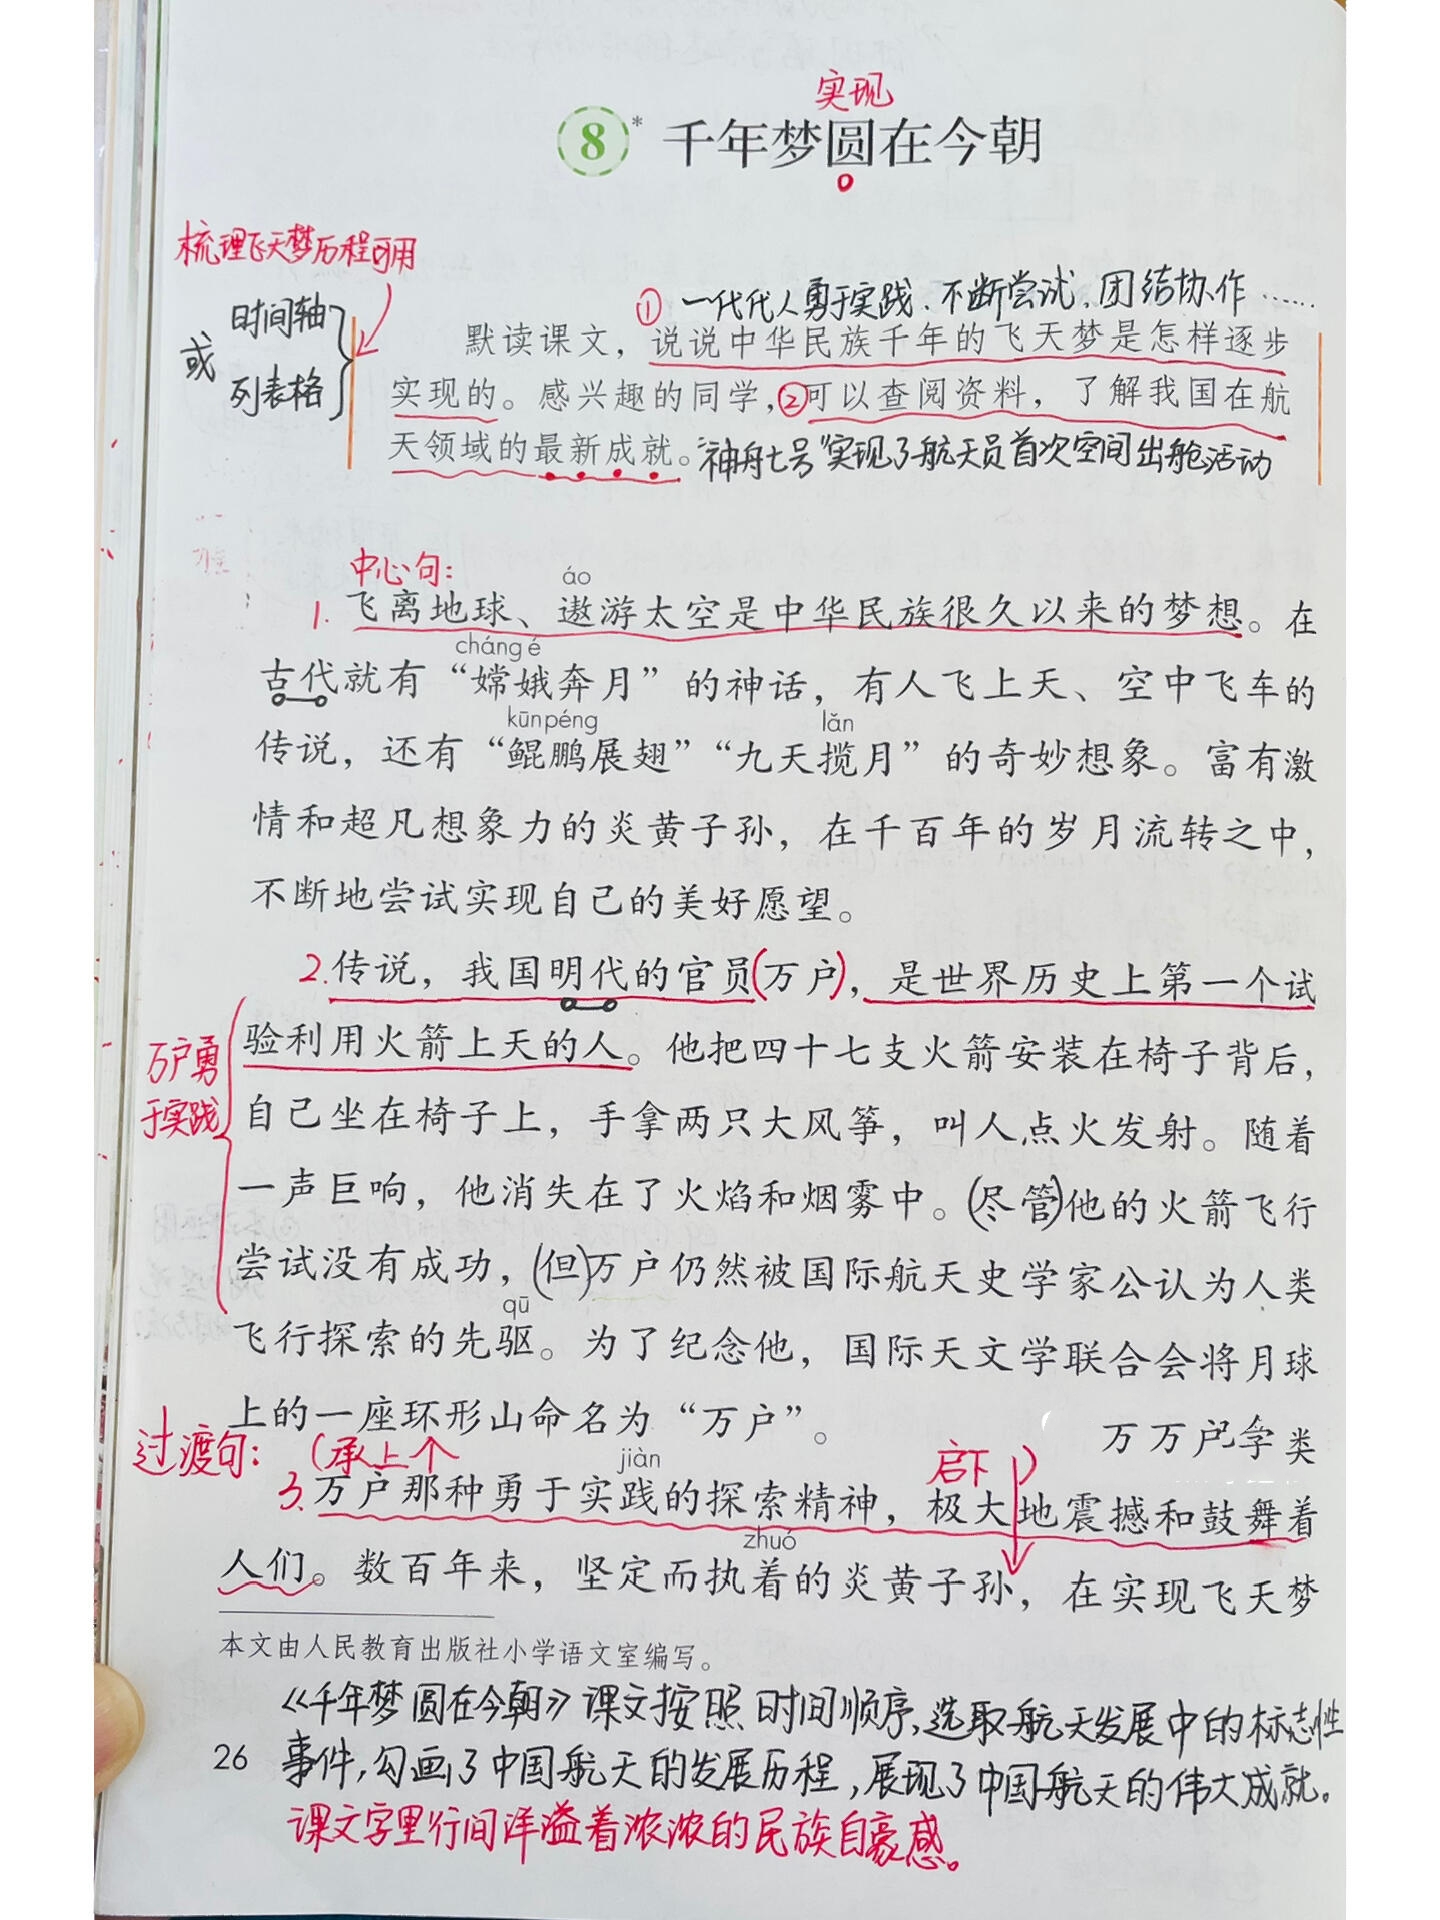 实现
8* 千年梦圆在今朝
梳理飞天梦历程可用
时间轴
或
列表格
① 一代代人勇于实践、不断尝试、团结协作……
默读课文，说说中华民族千年的飞天梦是怎样逐步
实现的。感兴趣的同学，②可以查阅资料，了解我国在航
天领域的最新成就。“神舟七号”实现了航天员首次空间出舱活动
中心句：
áo
1. 飞离地球、遨游太空是中华民族很久以来的梦想。在
cháng é
古代就有“嫦娥奔月”的神话，有人飞上天、空中飞车的
kūn péng lǎn
传说，还有“鲲鹏展翅”“九天揽月”的奇妙想象。富有激
情和超凡想象力的炎黄子孙，在千百年的岁月流转之中，
不断地尝试实现自己的美好愿望。
2. 传说，我国明代的官员(万户)，是世界历史上第一个试
验利用火箭上天的人。他把四十七支火箭安装在椅子背后，
万户勇
于实践
自己坐在椅子上，手拿两只大风筝，叫人点火发射。随着
一声巨响，他消失在了火焰和烟雾中。(尽管)他的火箭飞行
尝试没有成功，(但)万户仍然被国际航天史学家公认为人类
qū
飞行探索的先驱。为了纪念他，国际天文学联合会将月球
上的一座环形山命名为“万户”。
过渡句：(承上个 启下)
jiàn
3. 万户那种勇于实践的探索精神，极大地震撼和鼓舞着
zhuó
人们。数百年来，坚定而执着的炎黄子孙，在实现飞天梦
本文由人民教育出版社小学语文室编写。
《千年梦圆在今朝》课文按照时间顺序，选取航天发展中的标志性
26 事件，勾画了中国航天的发展历程，展现了中国航天的伟大成就。
课文字里行间洋溢着浓浓的民族自豪感。